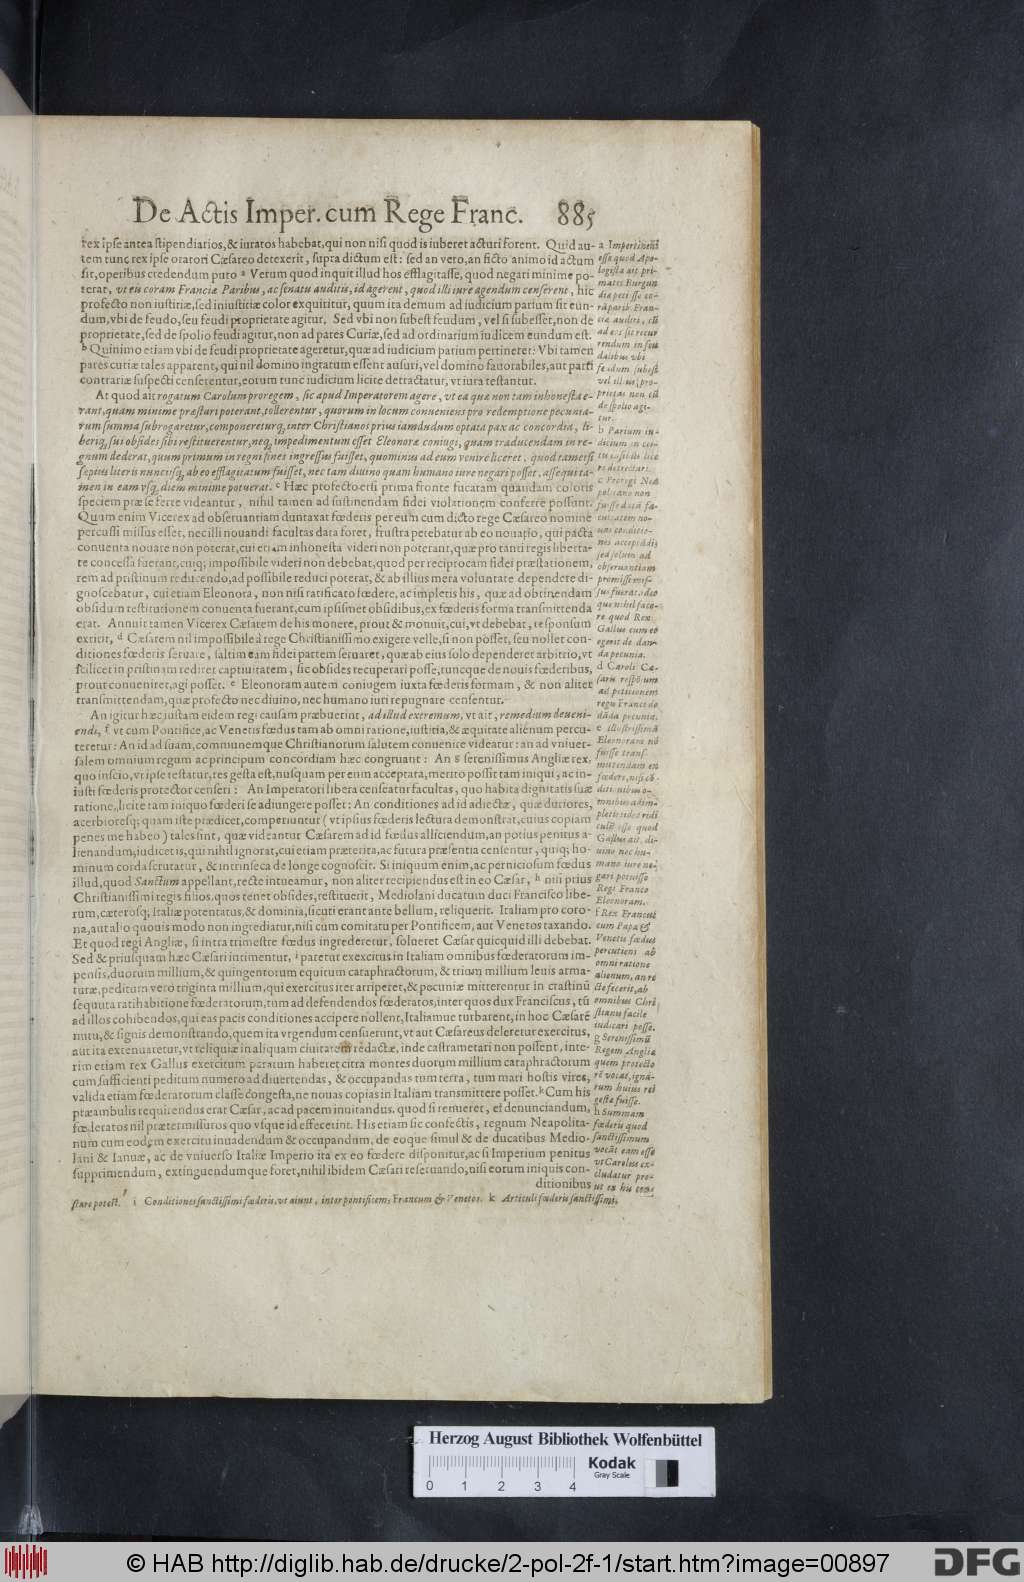 De Actis Imper. cum Rege Franc. 885
rex ipse antea stipendiarios, & iuratos habebat, qui non nisi quod is iuberet acturi forent. Quid au-
tem tunc rex ipse oratori Cæsareo detexerit, supra dictum est: sed an vero, an ficto animo id actum
sit, operibus credendum puto a Verum quod inquit illud hos efflagitasse, quod negari minime po-
terat, vt eis coram Franciæ Paribus, ac senatu auditis, id agerent, quod illi iure agendum censerent, hic
profecto non iustitiæ, sed iniustitiæ color exquiritur, quum ita demum ad iudicium parium sit eun-
dum, vbi de feudo, seu feudi proprietate agitur. Sed vbi non subest feudum, vel si subesset, non de
proprietate, sed de spolio feudi agitur, non ad pares Curiæ, sed ad ordinarium iudicem eundum est.
b Quinimo etiam vbi de feudi proprietate ageretur, quæ ad iudicium parium pertineret: Vbi tamen
pares curiæ tales apparent, qui nil domino ingratum essent ausuri, vel domino fauorabiles, aut parti
contrariæ suspecti censerentur, eorum tunc iudicium licite detractatur, vt iura testantur.
At quod ait rogatum Carolum proregem, sic apud Imperatorem agere, vt ea quæ non tam inhonesta e-
rant, quam minime præstari poterant, tollerentur, quorum in locum conueniens pro redemptione pecunia-
rum summa subrogaretur, componereturq; inter Christianos prius iamdudum optata pax ac concordia, li-
beriq; sui obsides sibi restituerentur, neq; impedimentum esset Eleonoræ coniugi, quam traducendam in re-
gnum dederat, quum primum in regni fines ingressus fuisset, quominus ad eum venire liceret, quod tametsi
sæpius literis nunciisq; ab eo efflagitatum fuisset, nec tam diuino quam humano iure negari posset, assequi ta-
men in eam vsq; diem minime potuerat. c Hæc profecto etsi prima fronte fucatam quandam coloris
speciem præ se ferre videantur, nihil tamen ad sustinendam fidei violationem conferre possunt.
Quum enim Vicerex ad obseruantiam duntaxat fœderis per eum cum dicto rege Cæsareo nomine
percussi missus esset, nec illi nouandi facultas data foret, frustra petebatur ab eo nouatio, qui pacta
conuenta nouare non poterat, cui etiam inhonesta videri non poterant, quæ pro tanti regis liberta-
te concessa fuerant, cuiq; impossibile videri non debebat, quod per reciprocam fidei præstationem,
rem ad pristinum reducendo, ad possibile reduci poterat, & ab illius mera voluntate dependere di-
gnoscebatur, cui etiam Eleonora, non nisi ratificato fœdere, ac impletis his, quæ ad obtinendam
obsidum restitutionem conuenta fuerant, cum ipsismet obsidibus, ex fœderis forma transmittenda
erat. Annuit tamen Vicerex Cæsarem de his monere, prout & monuit, cui, vt debebat, responsum
extitit, d Cæsarem nil impossibile à rege Christianissimo exigere velle, si non posset, seu nollet con-
ditiones fœderis seruare, saltim eam fidei partem seruaret, quæ ab eius solo dependeret arbitrio, vt
scilicet in pristinam rediret captiuitatem, sic obsides recuperari posse, tuncque de nouis fœderibus,
prout conueniret, agi posset. e Eleonoram autem coniugem iuxta fœderis formam, & non aliter
transmittendam, quæ profecto nec diuino, nec humano iuri repugnare censentur.
An igitur hæc iustam eidem regi causam præbuerint, ad illud extremum, vt ait, remedium deueni-
endi, f vt cum Pontifice, ac Venetis fœdus tam ab omni ratione, iustitia, & æquitate alienum percu-
teretur: An id ad suam, communemque Christianorum salutem conuenire videatur: an ad vniuer-
salem omnium regum ac principum concordiam hæc congruant: An g serenissimus Angliæ rex,
quo inscio, vt ipse testatur, res gesta est, nusquam per eum acceptata, merito possit tam iniqui, ac in-
iusti fœderis protector censeri: An Imperatori libera censeatur facultas, quo habita dignitatis suæ
ratione, licite tam iniquo fœderi se adiungere posset: An conditiones ad id adiectæ, quæ duriores,
acerbioresq; quam iste prædicet, comperiuntur (vt ipsius fœderis lectura demonstrat, cuius copiam
penes me habeo) tales sint, quæ videantur Cæsarem ad id fœdus alliciendum, an potius penitus a-
lienandum, iudicet is, qui nihil ignorat, cui etiam præterita, ac futura præsentia censentur, quiq; ho-
minum corda scrutatur, & intrinseca de longe cognoscit. Si iniquum enim, ac perniciosum fœdus
illud, quod Sanctum appellant, recte intueamur, non aliter recipiendus est in eo Cæsar, h nisi prius
Christianissimi regis filios, quos tenet obsides, restituerit, Mediolani ducatum duci Francisco libe-
rum, cæterosq; Italiæ potentatus, & dominia, sicuti erant ante bellum, reliquerit. Italiam pro coro-
na, aut alio quouis modo non ingrediatur, nisi cum comitatu per Pontificem, aut Venetos taxando.
Et quod regi Angliæ, si intra trimestre fœdus ingrederetur, solueret Cæsar quicquid illi debebat.
Sed & priusquam hæc Cæsari intimentur, i paretur exercitus in Italiam omnibus fœderatorum im-
pensis, duorum millium, & quingentorum equitum cataphractorum, & trium millium leuis arma-
turæ, peditum vero triginta millium, qui exercitus iter arriperet, & pecuniæ mitterentur in crastinũ
sequuta ratihabitione fœderatorum, tum ad defendendos fœderatos, inter quos dux Franciscus, tũ
ad illos cohibendos, qui eas pacis conditiones accipere nollent, Italiamue turbarent, in hoc Cæsarẽ
nutu, & signis demonstrando, quem ita vrgendum censuerunt, vt aut Cæsareus deleretur exercitus,
aut ita extenuaretur, vt reliquiæ in aliquam ciuitatem redactæ, inde castrametari non possent, inte-
rim etiam rex Gallus exercitum paratum haberet citra montes duorum millium cataphractorum
cum sufficienti peditum numero ad diuertendas, & occupandas tum terra, tum mari hostis vires,
valida etiam fœderatorum classe congesta, ne nouas copias in Italiam transmittere posset. k Cum his
præambulis requirendus erat Cæsar, ac ad pacem inuitandus. quod si renueret, ei denunciandum,
fœderatos nil prætermissuros quo vsque id effecerint. His etiam sic confectis, regnum Neapolita-
num cum eodem exercitu inuadendum & occupandum, de eoque simul & de ducatibus Medio-
lani & Ianuæ, ac de vniuerso Italiæ Imperio ita ex eo fœdere disponitur, ac si Imperium penitus
supprimendum, extinguendumque foret, nihil ibidem Cæsari reseruando, nisi eorum iniquis con-
ditionibus
a Impertinens
esse quod Apo-
logista ait pri-
mates Burgun
diæ petisse co-
rã parib. Fran-
ciæ audiri, cũ
ad eos sit recur
rendum in feu
dalibus vbi
feudum subest
vel illius pro-
prietas non cũ
de spolio agi-
tur.
b Parium iu-
dicium in cer-
tis casibus lice
re detrectari.
c Proregi Nea
politano non
fuisse datã fa-
cultatem no-
uas conditio-
nes accipiẽdi,
sed solum ad
obseruantiam
promissi mis-
sus fuerat, adeo
que nihil face-
re quod Rex
Gallus cum eo
egerit de dan-
da pecunia.
d Caroli Cæ-
saris respõsum
ad petitionem
regis Franc. de
dãda pecunia.
e Illustrissimã
Eleonoram nõ
fuisse trans-
mittendam ex
fœdere, nisi cõ-
ditionibus o-
mnibus adim-
pletis: ideo ridi
culũ esse quod
Gallus ait. di-
uino nec hu-
mano iure ne-
gari potuisse
Regi Franco
Eleonoram.
f Rex Franciæ
cum Papa &
Venetis fœdus
percutiens ab
omni ratione
alienum, an re
cte fecerit, ab
omnibus Chri
stianis facile
iudicari posse.
g Serenissimũ
Regem Angliæ
quem protecto
rẽ vocat, ignã-
rum huius rei
gestæ fuisse.
h Summam
fœderis quod
sanctissimum
vocãt eam esse
vt Carolus ex-
cludatur pro-
ut ex his con-
stare potest. i Conditiones sanctissimi fœderis, vt aiunt, inter pontificem, Francum & Venetos. k Articuli fœderis sanctissimi.
Herzog August Bibliothek Wolfenbüttel
0 1 2 3 4
Kodak
Gray Scale
© HAB http://diglib.hab.de/drucke/2-pol-2f-1/start.htm?image=00897
DFG